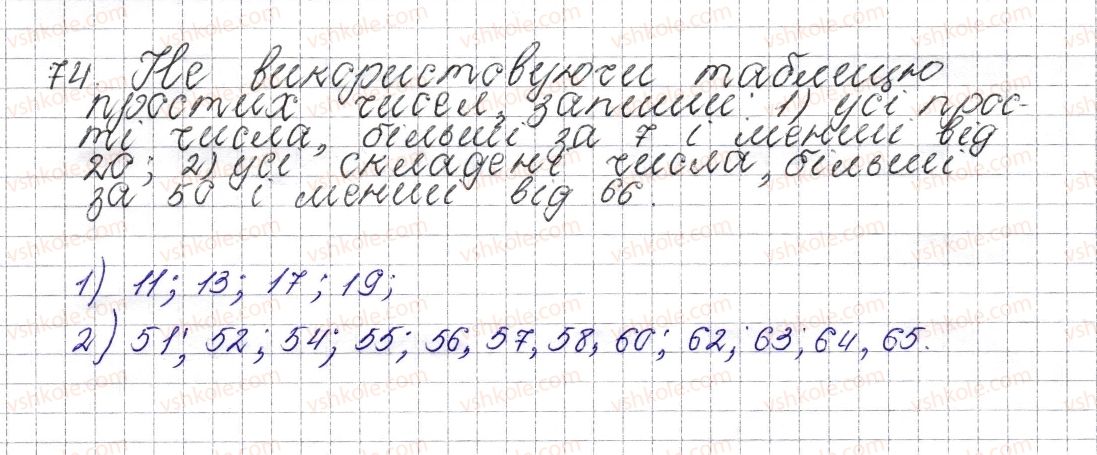 74. Не використовуючи таблицю
простих чисел, запиши: 1) усі прос-
ті числа, більші за 7 і менші від
20; 2) усі складені числа, більші
за 50 і менші від 66.
1) 11; 13; 17; 19;
2) 51; 52; 54; 55; 56, 57, 58, 60; 62; 63; 64, 65.